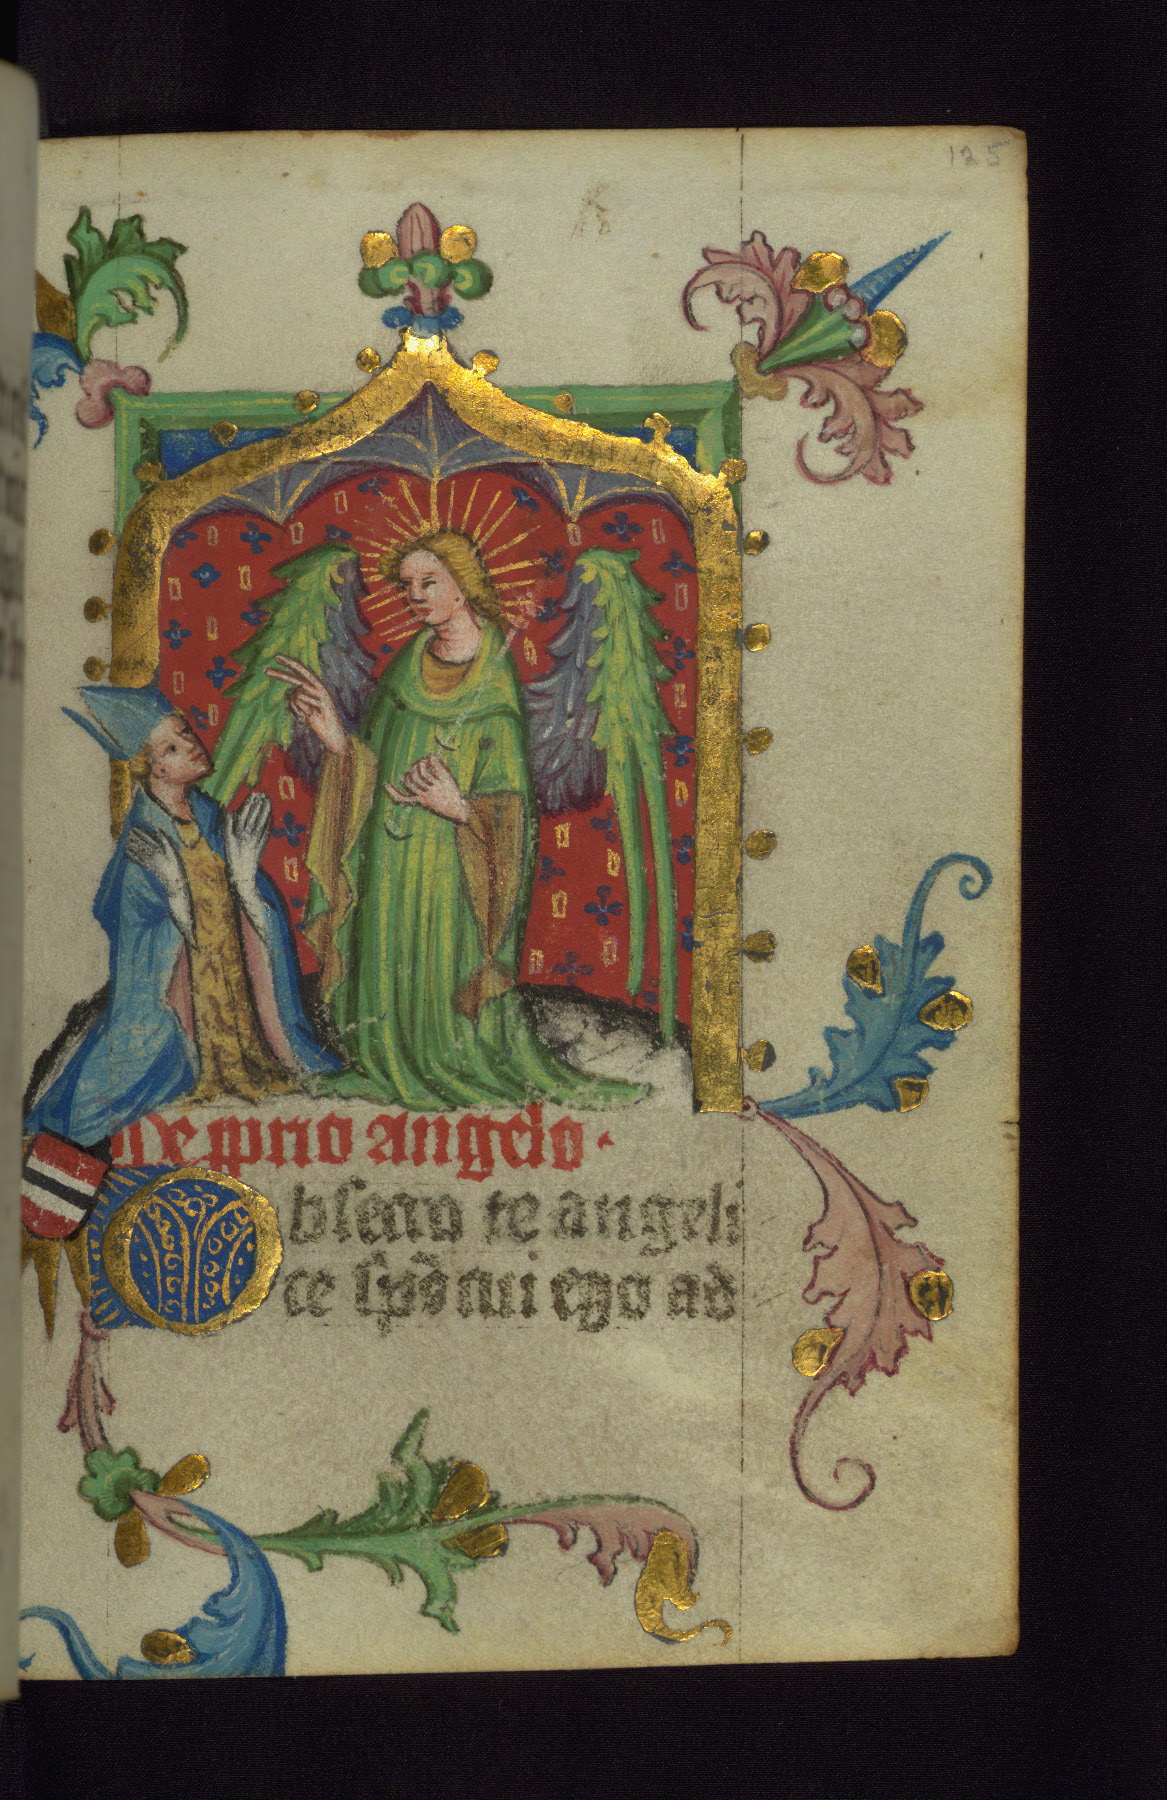 125
De pprio angelo.
Obsecro te angeli
ce sps cui ego ad